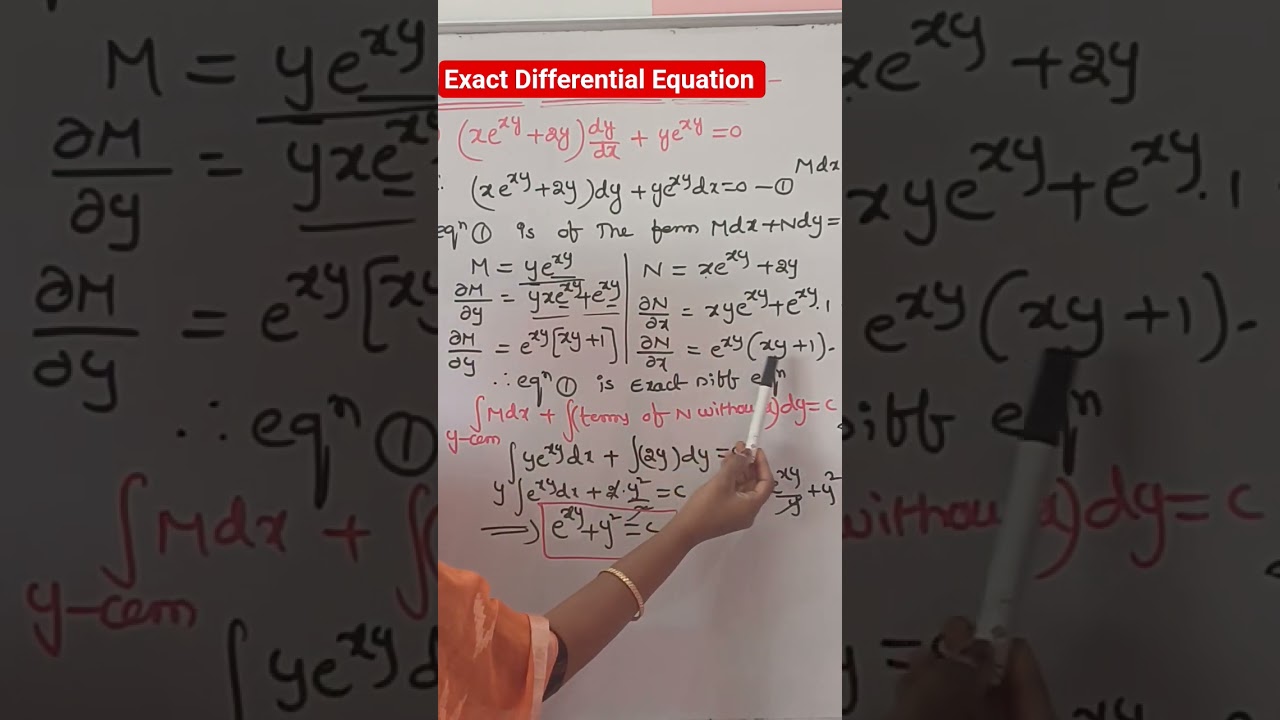 Exact Differential Equation
(xe^xy + 2y) dy/dx + ye^xy = 0
∴ (xe^xy + 2y)dy + ye^xy dx = 0 – ①
Mdx
eqⁿ ① is of The form Mdx + Ndy =
M = ye^xy | N = xe^xy + 2y
∂M/∂y = yxe^xy + e^xy | ∂N/∂x = xye^xy + e^xy.1
∂M/∂y = e^xy[xy+1] | ∂N/∂x = e^xy(xy+1).
∴ eqⁿ ① is Exact Diff eqⁿ
∫Mdx + ∫(terms of N without x)dy = c
y-con
∫ye^xy dx + ∫(2y)dy =
y∫e^xy dx + 2·y²/2 = c
e^xy/y + y²
⟹ e^xy + y² = c